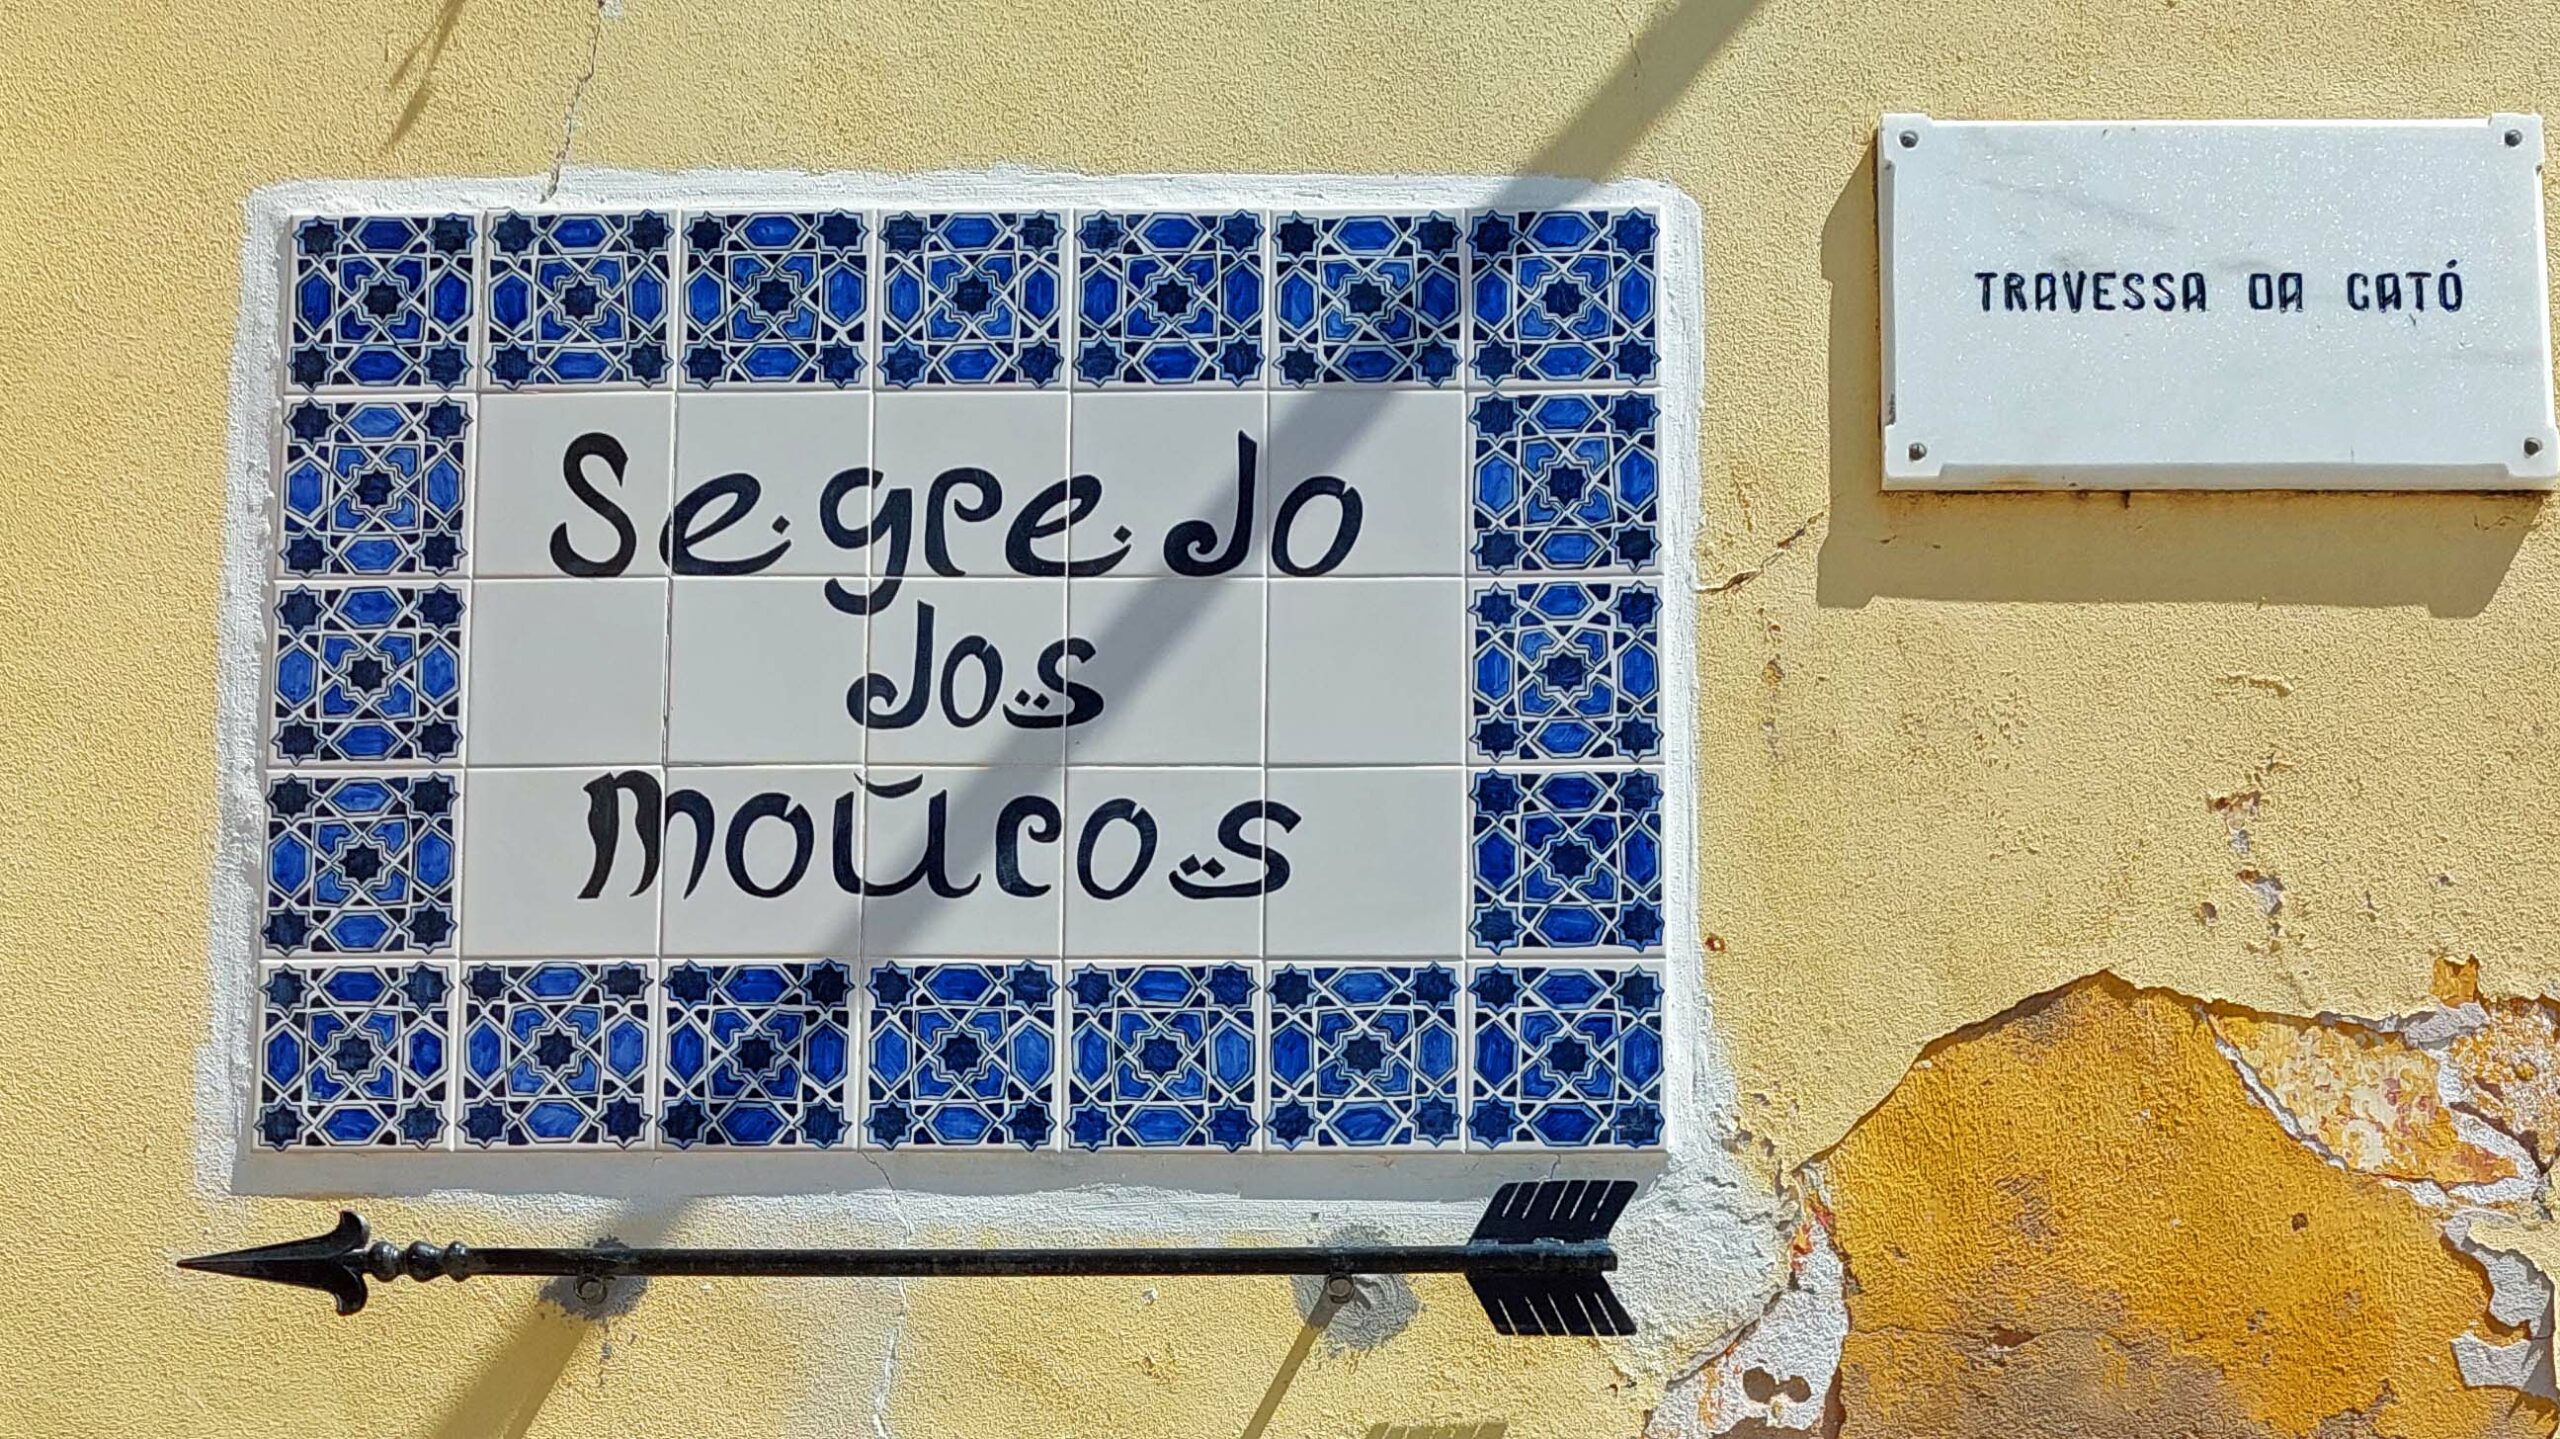 Segredo
dos
Mouros
TRAVESSA DA CATÓ